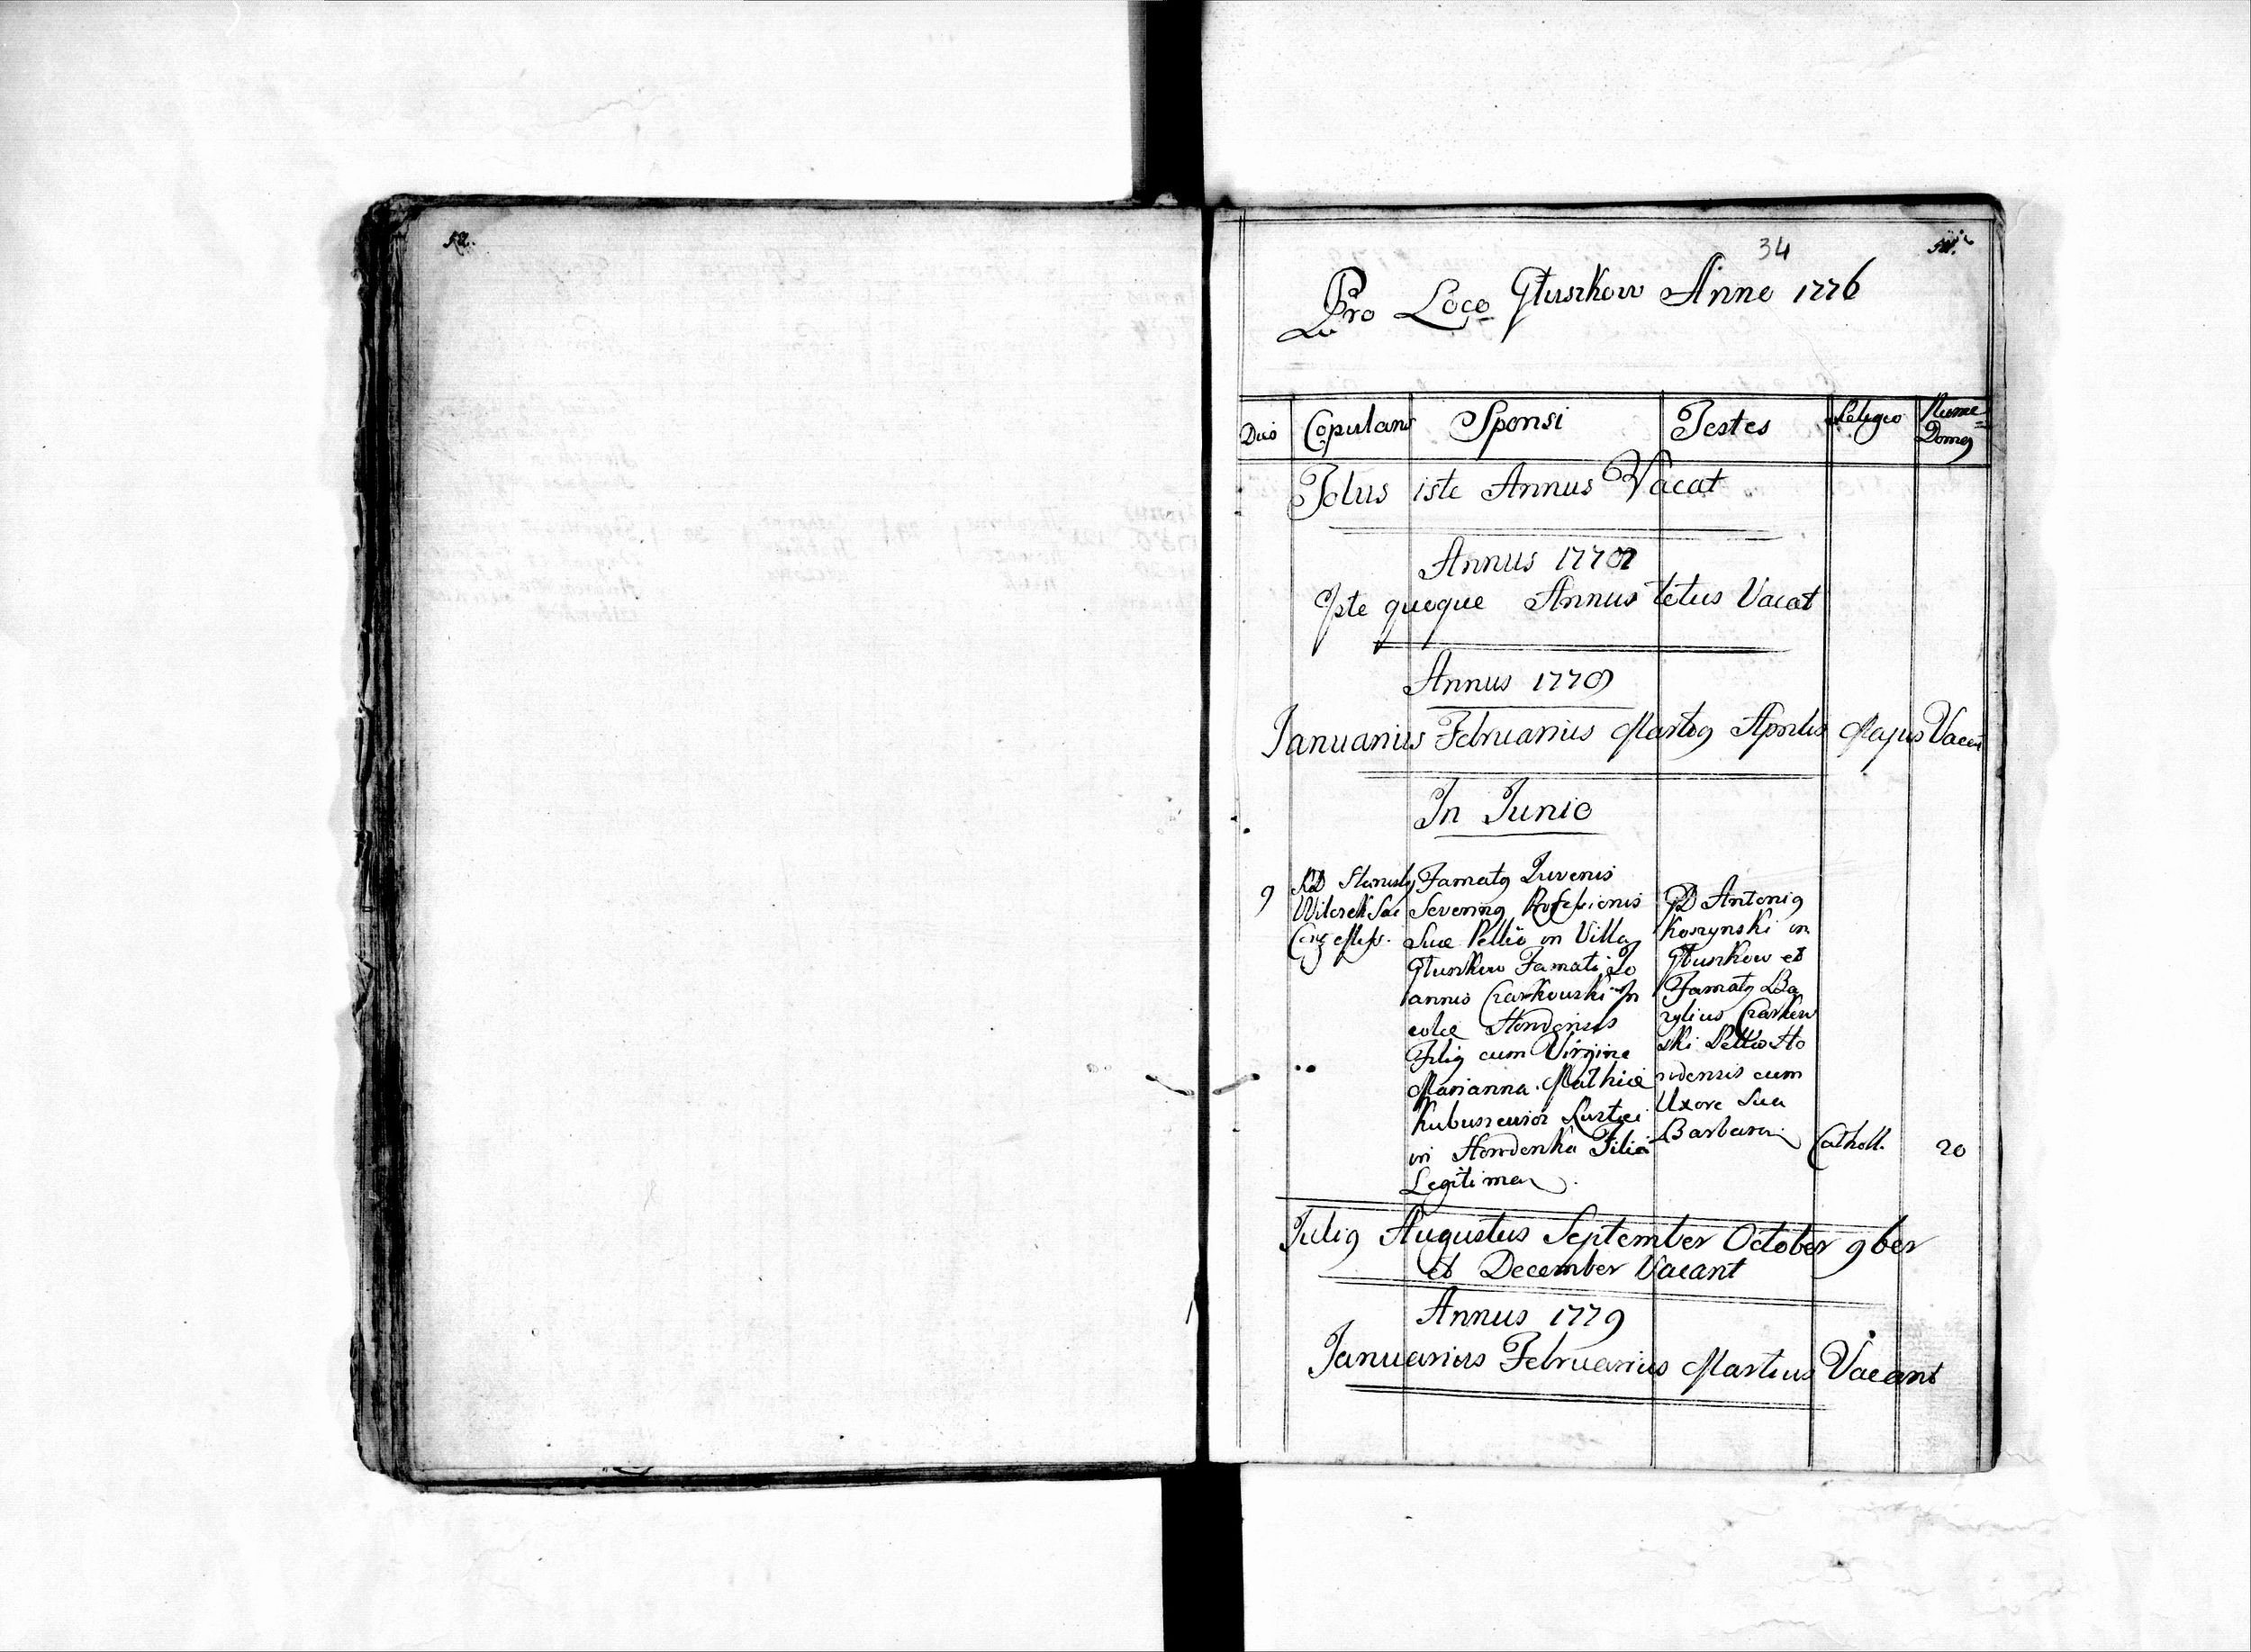 52.
34
Pro Loco Głuszkow Anno 1776
Dies
Copulans
Sponsi
Testes
Religio
Nume=
Domq
Totus iste Annus Vacat
Annus 1777
Iste quoque Annus totus Vacat
Annus 1778
Januarius Februarius Martiq Aprilis Majus Vacat
In Junio
9
RD Stanislq
Wilczek Sac
Famatq Juvenis
Severinq Professionis
Suæ Pellio in Villa
Głuszkow Famati Jo
annis Czarkowski In
colæ Horodensis
Filiq cum Virgine
Marianna Mathiæ
Rustici
in Horodenka Filia
Legitima
GD Antoniq
Koszynski in
Głuszkow et
Famatq Ba
zylius Czarkow
ski Pellio Ho
rodensis cum
Uxore Sua
Barbara
Catholl.
20
Juliq Augustus September October 9ber
et December Vacant
Annus 1779
Januarius Februarius Martius Vacant